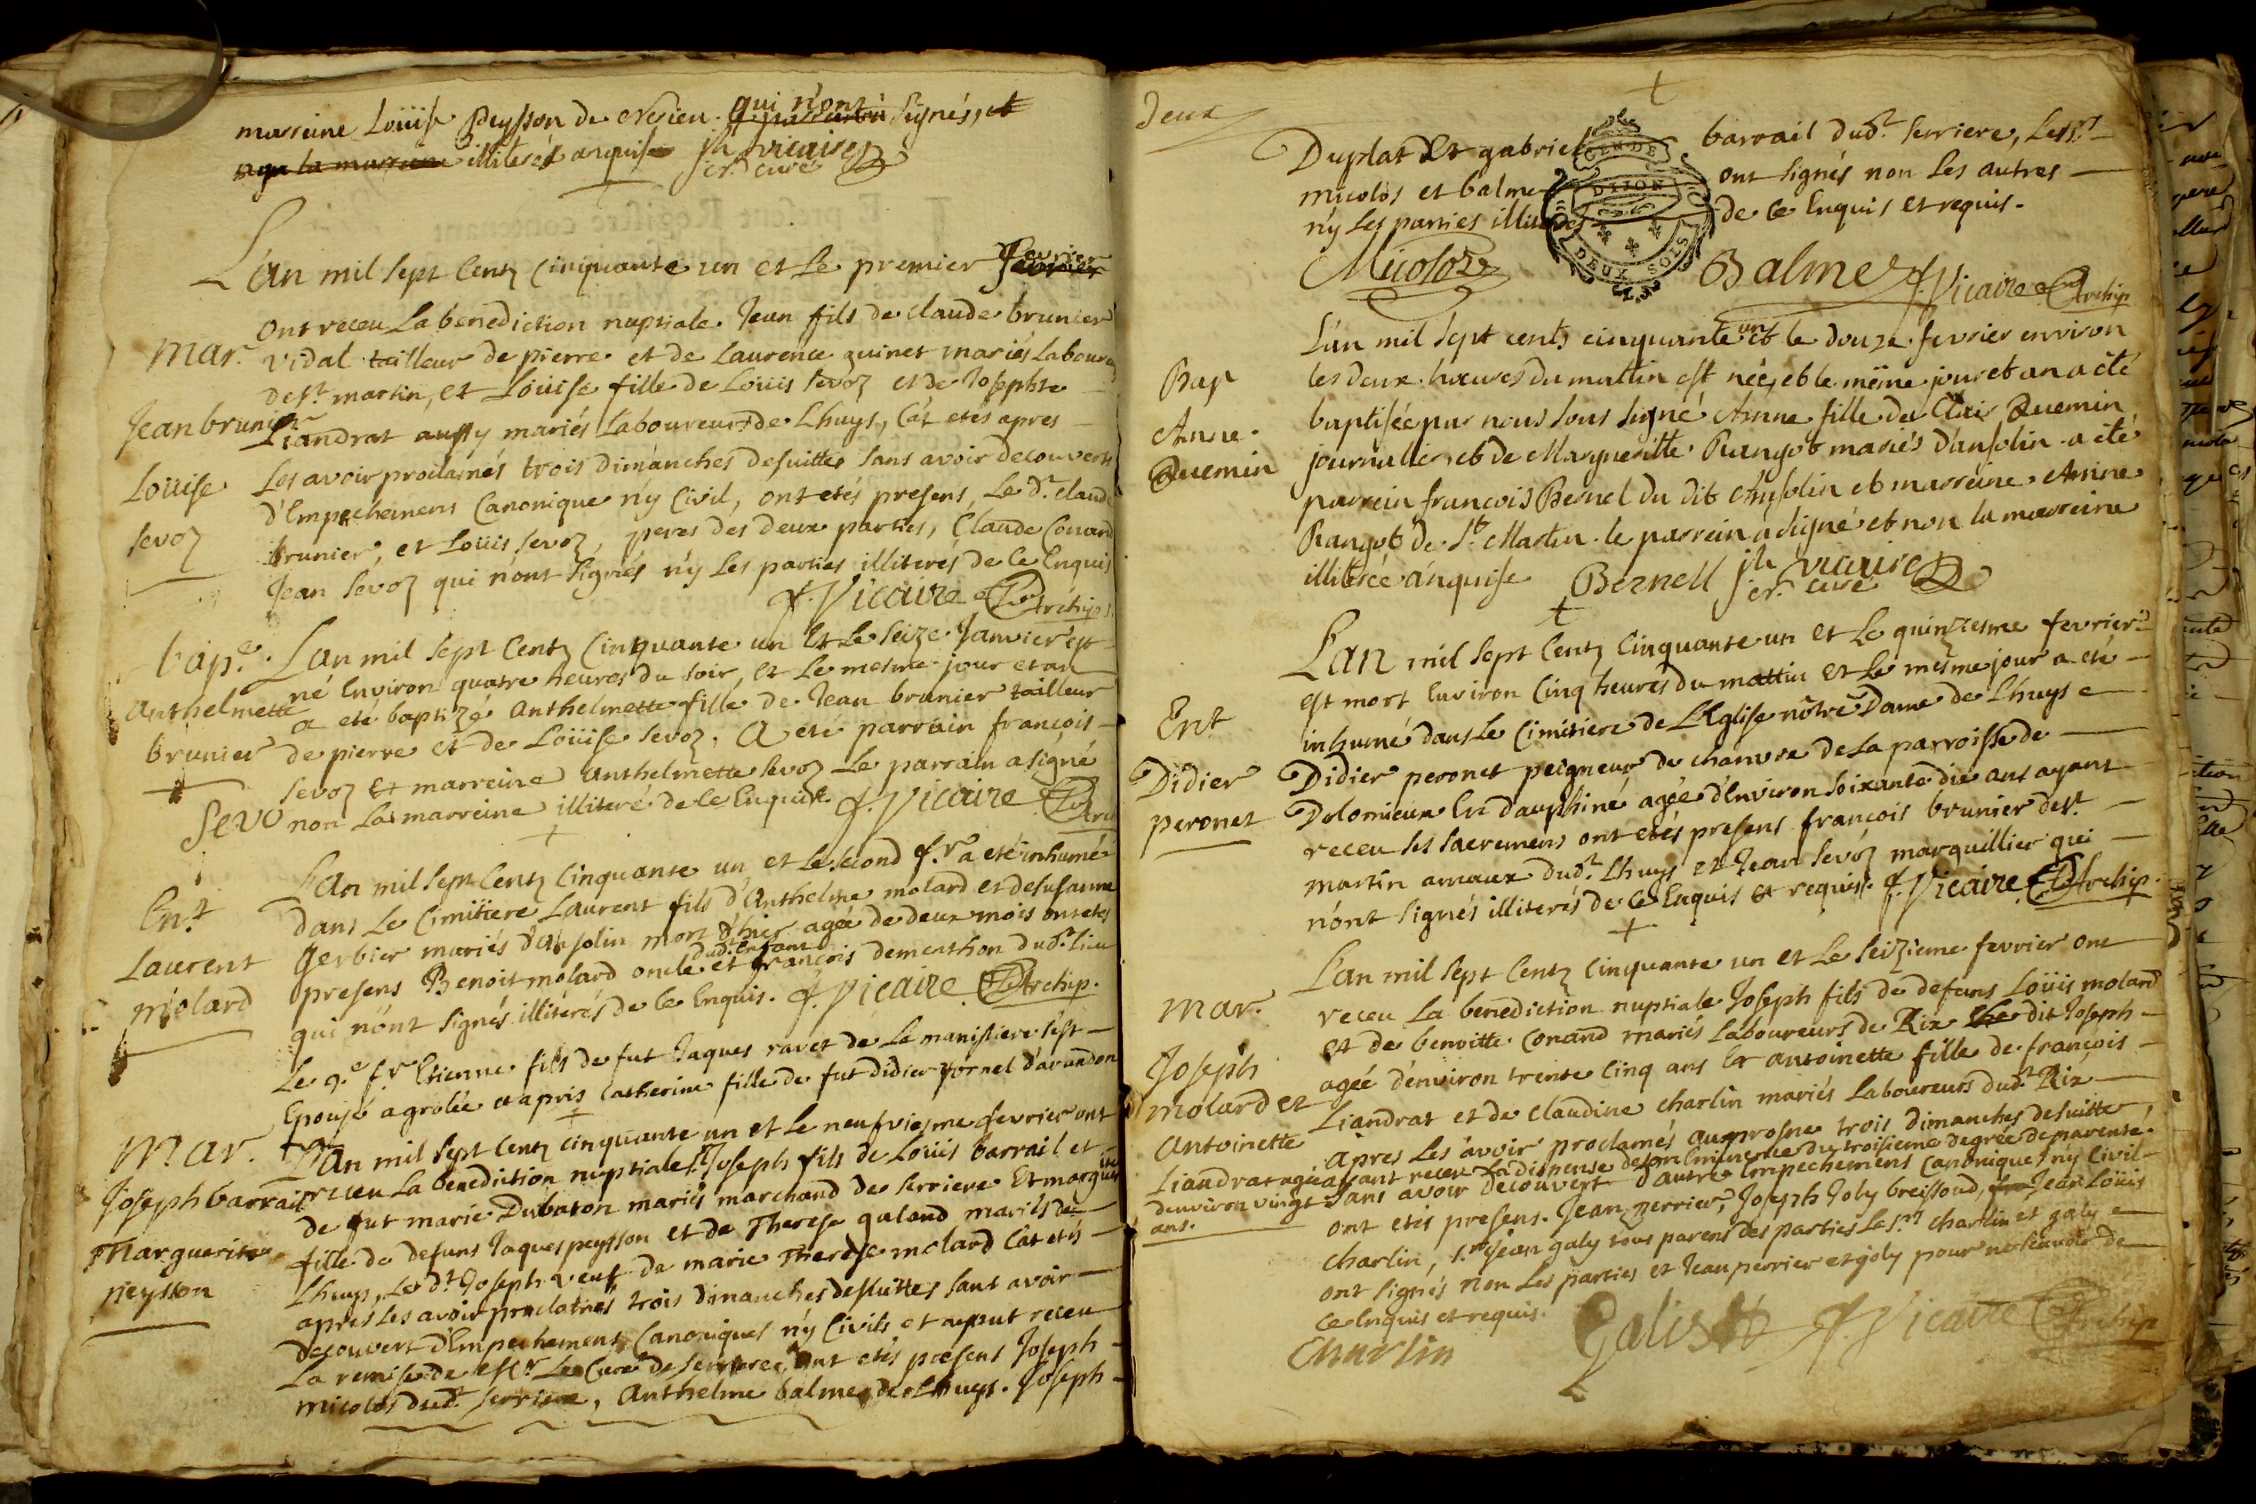 marreine Loüise Peysson de Crixieu qui n'ont signés, et
illiterés anquise jh vicaire
cr. curé
L'an mil sept Centz Cinquante un et Le premier fevrier
ont receu La benediction nuptiale Jean fils de claude brunier
Mar.
vidal tailleur de pierre et de Laurence guinet mariés Laboureurs
de st martin, et Loüise fille de Loüis sevoz et de Josephte
Jean brunier
Liandrat aussy mariés Laboureurs de Lhuys, Cat etés apres
Loüise
Les avoir proclamés trois dimanches desuittes sans avoir decouvert
d'Empechemens Canonique n'y Civil, ont etés presens, Le dt. claude
sevoz
brunier, et Loüis sevoz, peres des deux parties, Claude Conand
Jean sevoz qui n'ont signés n'y Les parties illiteres de Ce Enquis
f. Vicaire Archip.
bap.e
Lan mil sept Centz Cinquante un Et Le seize Janvier est
né Environ quatre heures du soir, et Le mesme jour et an
Anthelmette
a eté baptizé anthelmette fille de Jean brunier tailleur
brunier
de pierre et de Loüise sevoz, A eté parrain françois
sevoz Et marreine anthelmette sevoz Le parrain a signé
Sevo
non La marreine illiteré de Ce Enquise f. Vicaire Arc
L'an mil sept Centz Cinquante un et Le second f.r a eté inhumé
En.t
dans Le Cimitiere Laurent fils d'Anthelme molard et de susanne
Laurent
gerbier mariés d'ansolin mort d'hier agée de deux mois ont etes
dud. Enfant
molard
presens Benoit molard oncle et françois dementhon dud. lieu
qui n'ont signés illiterés de Ce Enquis. f. Vicaire Archip.
Le 9.e f.r Etienne fils de fut Jaques ravet de La manissiere s'est
Epousé a grolée a apris Catherine fille de fut didier pornel d'avandon
Mar.
L'An mil sept Centz Cinquante un et Le neufviesme fevrier ont
Joseph barrail
receu La benediction nuptiale st Joseph fils de Loüis barrail et
de fut marie Dubaton mariés marchand de serriere Et marguerite
Marguerite
fille de defuns Jaques peysson et de Therese galand mariés de
peysson
Lhuys, Le dt Joseph veuf de marie Therese molard Cat etés
apres Les avoir proclamés trois dimanches desuittes sans avoir
decouvert d'Empechemens Canoniques n'y Civils et ayant receu
La remise de Mr. Le Curé de serriere, ont etés presens Joseph
micoloz dud. serriere, anthelme balme de Lhuys. Joseph
Deux
Duplat Et gabriel barrail dud. serriere, Les srs
micolos et balme ont signés non Les autres
n'y Les parties illiterés de Ce Enquis et requis.
GEN DE
DIJON
DEUX SOLS
Micoloz Balme f Vicaire Archip
L'an mil sept cents cinquante un et le douze fevrier environ
Bap
les deux heures du mattin est née, et le même jour et an a été
Anne
baptisée par nous sous signé Anne fille de Clair Quemin
Quemin
journallier et de Marguéritte Rangot mariés d'ansolin a été
parrein francois Bernel du dit Ansolin et marreine Anne
Rangot de St. Martin. le parrein a signé et non la marreine
illiterée anquise Bernell jh vicaire
cr. curé
L'an mil sept Centz Cinquante un et Le quinziesme fevrier
est mort Environ Cinq heures du mattin Et Le mesme jour a eté
Ent
inhumé dans Le Cimitiere de L'Eglise nôtre Dame de Lhuys
Didier
Didier peronet peigneur de chanvre de La parroisse de
peronet
Dolomieux En dauphiné agée d'Environ soixante dix ans ayant
receu les sacremens ont etés presens françois brunier de st.
martin amaux dud. Lhuys et Jean sevoz marguillier qui
n'ont signés illiterés de Ce Enquis Et requise. f. Vicaire Archip.
L'an mil sept Centz Cinquante un et Le seizieme fevrier ont
Mar.
receu La benediction nuptiale Joseph fils de defuns Loüis molard
et de benoitte Conand mariés Laboureurs de Rix Le dit Joseph
Joseph
agée d'environ trente Cinq ans Et antoinette fille de françois
molard et
Liandrat et de Claudine charlin mariés Laboureurs dud. Rix
Antoinette
apres Les avoir proclamés au prosne trois dimanches desuitte
Liandrat agée
ayant receu La dispense de son Eminence du troisieme degrée de parenté
denviron vingt
sans avoir decouvert d'autre Empechemens Canoniques n'y Civil
ans.
ont etés presens. Jean perrier, Joseph Joly breissoud, Jean Loüis
charlin, st. Jean galy tous parens des parties Les srs charlin et galy
ont signés non Les parties et Jean perrier et joly pour ne scavoir de
Ce Enquis et requis.
Charlin Galis f. Vicaire Archip